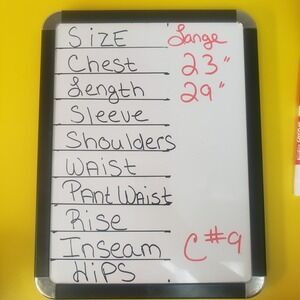 Size Large
Chest 23"
Length 29"
Sleeve
Shoulders
Waist
Pant Waist
Rise
Inseam C#9
Hips